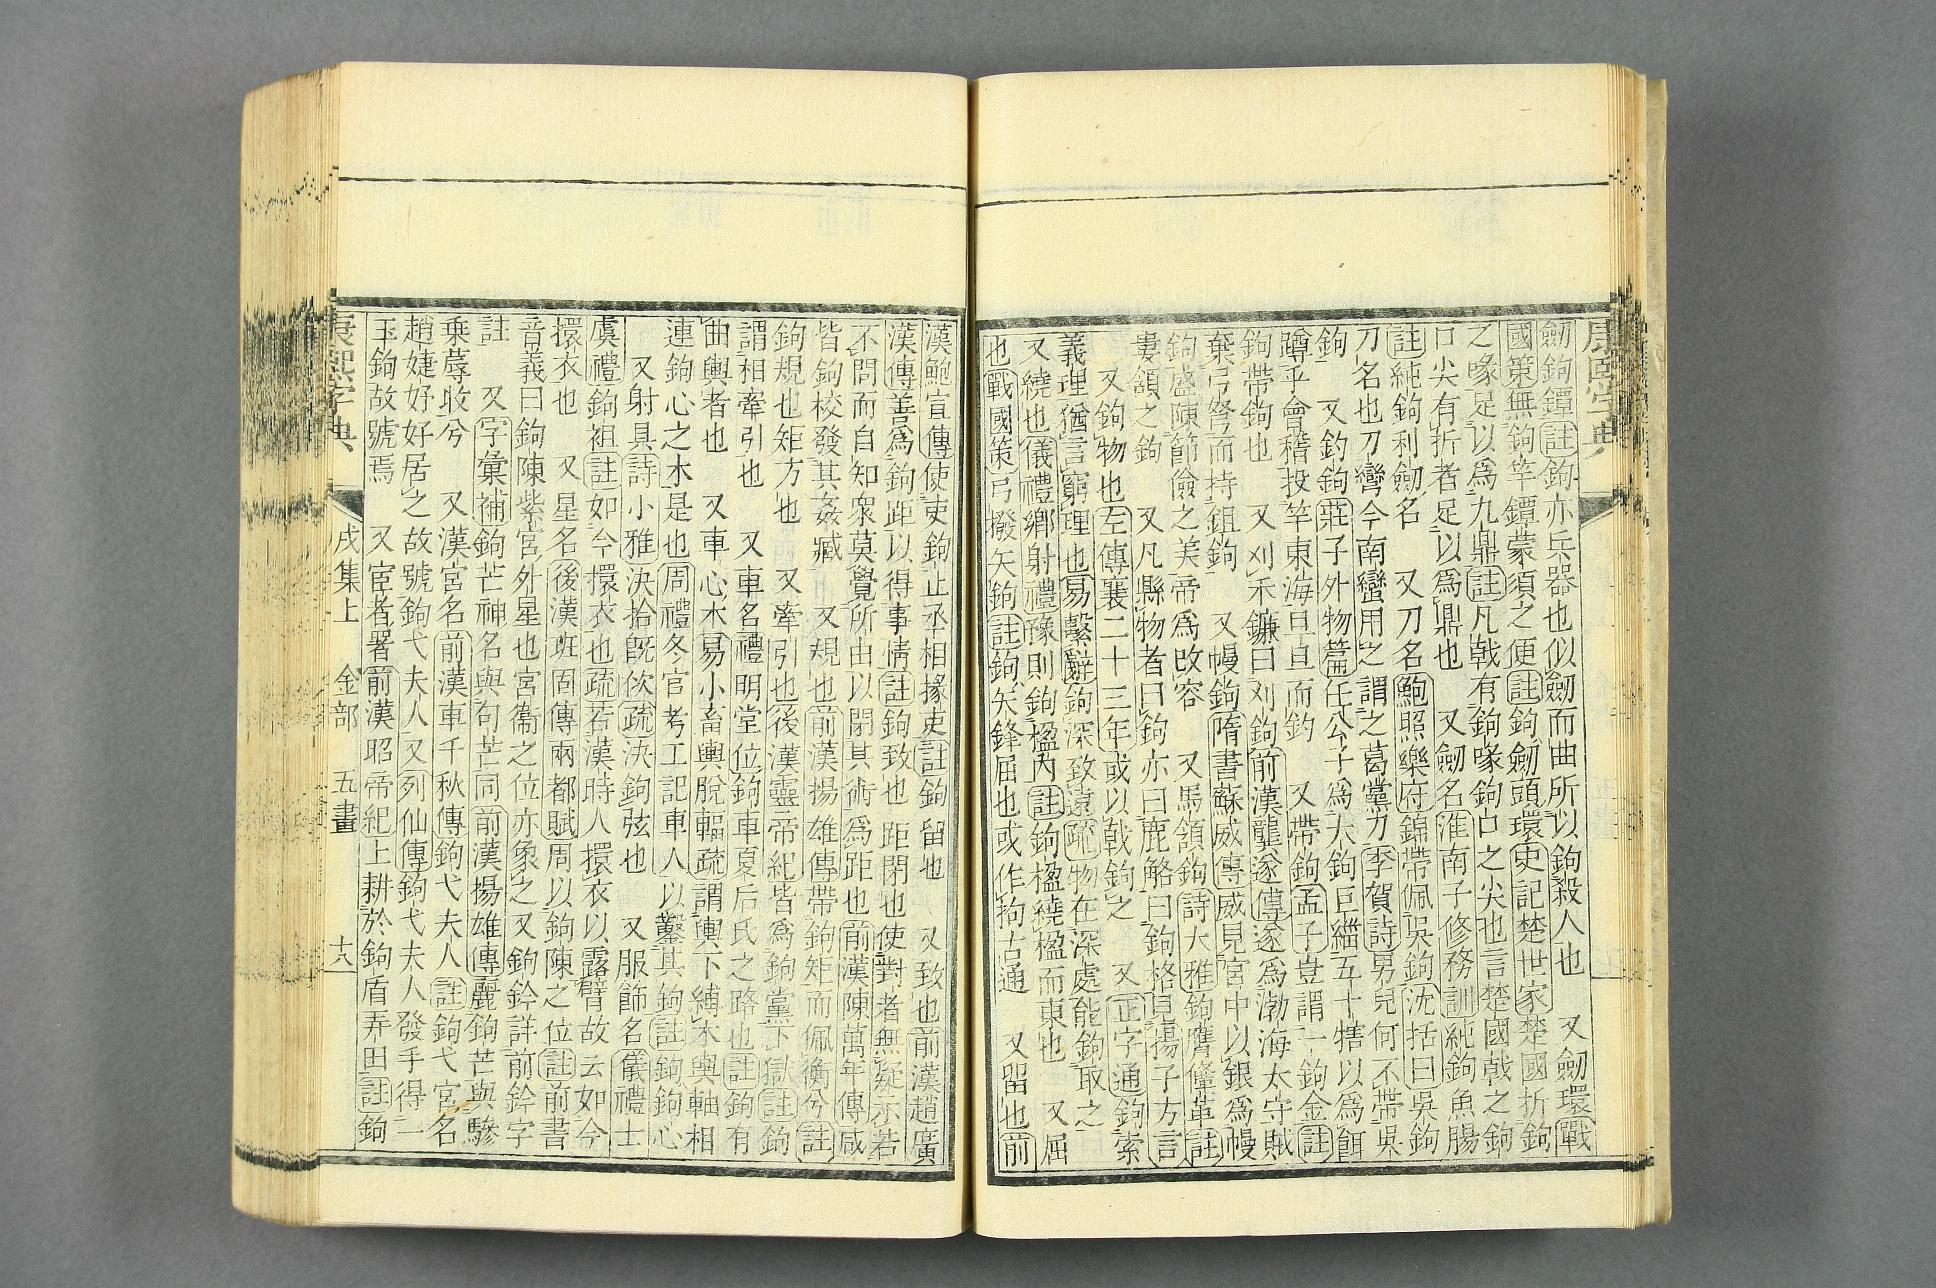 劒鉤鐔註鉤亦兵器也似劒而曲所以鉤殺人也 又劒環戰
國策無鉤竿鐔蒙須之便註鉤劒頭環史記楚世家楚國折鉤
之喙足以爲九鼎註凡戟有鉤喙鉤口之尖也言楚國戟之鉤
口尖有折者足以爲鼎也 又劒名淮南子修務訓純鉤魚腸
註純鉤利劒名 又刀名鮑照樂府錦帶佩吳鉤沈括曰吳鉤
刀名也刀彎今南蠻用之謂之葛黨刀李賀詩男兒何不帶吳
鉤 又釣鉤莊子外物篇任公子爲大鉤巨緇五十犗以爲餌
蹲乎會稽投竿東海旦旦而釣 又帶鉤孟子豈謂一鉤金註
鉤帶鉤也 又刈禾鐮曰刈鉤前漢龔遂傳遂爲渤海太守賊
棄弓弩而持鉏鉤 又幔鉤隋書蘇威傳威見宮中以銀爲幔
鉤盛陳節儉之美帝爲改容 又馬領鉤詩大雅鉤膺鞗革註
婁頷之鉤 又凡縣物者曰鉤亦曰鹿觡曰鉤格見揚子方言
又鉤物也左傳襄二十三年或以戟鉤之 又正字通鉤索
義理猶言窮理也易繫辭鉤深致遠疏物在深處能鉤取之
又繞也儀禮鄉射禮豫則鉤楹內註鉤楹繞楹而東也 又屈
也戰國策弓撥矢鉤註鉤矢鋒屈也或作拘古通 又留也前
漢鮑宣傳使吏鉤止丞相掾史註鉤留也 又致也前漢趙廣
漢傳善爲鉤距以得事情註鉤致也距閉也使對者無疑示若
不問而自知衆莫覺所由以閉其術爲距也前漢陳萬年傳咸
皆鉤校發其姦臧 又規也前漢揚雄傳帶鉤矩而佩衡兮註
鉤規也矩方也 又牽引也後漢靈帝紀皆爲鉤黨下獄註鉤
謂相牽引也 又車名禮明堂位鉤車夏后氏之路也註鉤有
曲輿者也 又車心木易小畜輿脫輻疏謂輿下縛木與軸相
連鉤心之木是也周禮冬官考工記車人以鑿其鉤註鉤鉤心
又射具詩小雅決拾旣佽疏決鉤弦也 又服飾名儀禮士
虞禮鉤袒註如今擐衣也疏若漢時人擐衣以露臂故云如今
擐衣也 又星名後漢班固傳兩都賦周以鉤陳之位註前書
音義曰鉤陳紫宮外星也宮衞之位亦象之又鉤鈐詳前鈐字
註 又字彙補鉤芒神名與句芒同前漢揚雄傳麗鉤芒與驂
乘蓐收兮 又漢宮名前漢車千秋傳鉤弋夫人註鉤弋宮名
趙婕妤好居之故號鉤弋夫人又列仙傳鉤弋夫人發手得一
玉鉤故號焉 又宦者署前漢昭帝紀上耕於鉤盾弄田註鉤
康熙字典 戌集上 金部 五畫 十八